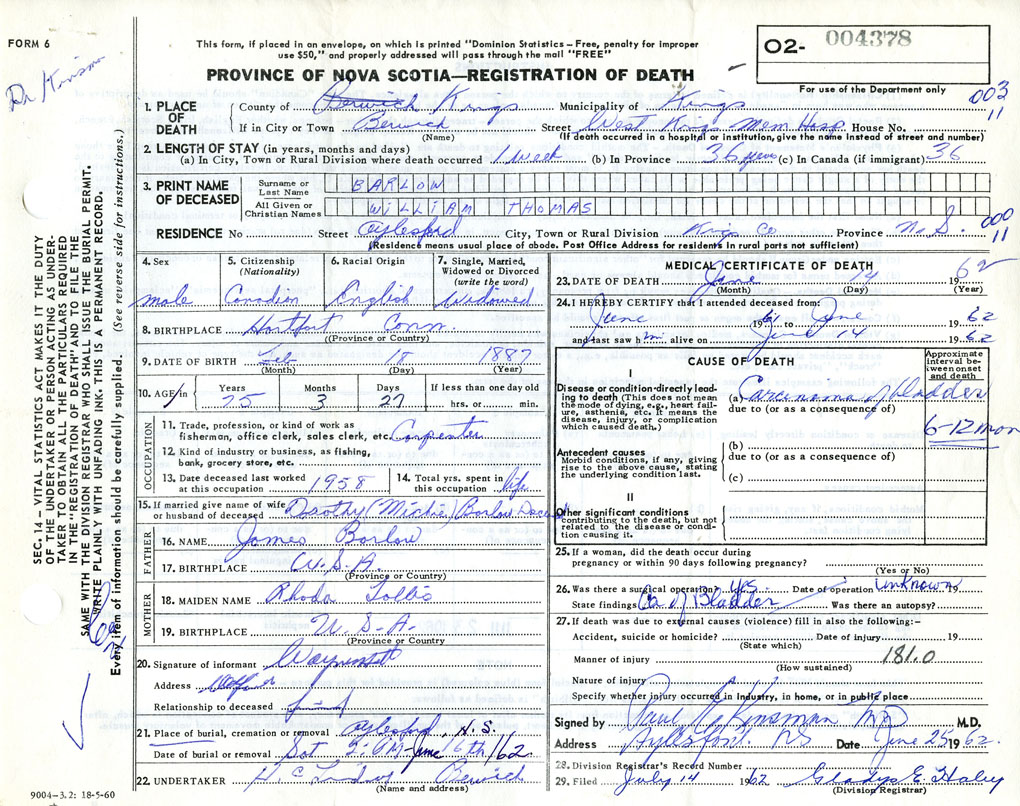 FORM 6
Dr Kinsman
This form, if placed in an envelope, on which is printed "Dominion Statistics – Free, penalty for improper
use $50," and properly addressed will pass through the mail "FREE"
O2- 004378
For use of the Department only
PROVINCE OF NOVA SCOTIA—REGISTRATION OF DEATH
003
11
1. PLACE OF DEATH
County of Berwick Kings Municipality of Kings
If in City or Town Berwick Street West Kings Mem Hosp House No.
(Name) (If death occurred in a hospital or institution, give the name instead of street and number)
2. LENGTH OF STAY (in years, months and days)
(a) In City, Town or Rural Division where death occurred 1 week (b) In Province 36 years (c) In Canada (if immigrant) 36
3. PRINT NAME OF DECEASED
Surname or Last Name BARLOW
All Given or Christian Names WILLIAM THOMAS
RESIDENCE No Street Aylesford City, Town or Rural Division Kings Co Province N.S.
000
11
(Residence means usual place of abode. Post Office Address for residents in rural parts not sufficient)
4. Sex 5. Citizenship (Nationality) 6. Racial Origin 7. Single, Married, Widowed or Divorced (write the word)
male Canadian English Widowed
8. BIRTHPLACE Hartfort Conn.
(Province or Country)
9. DATE OF BIRTH Feb 18 1887
(Month) (Day) (Year)
10. AGE Years Months Days If less than one day old
75 3 27 hrs. or min.
OCCUPATION
11. Trade, profession, or kind of work as
fisherman, office clerk, sales clerk, etc. Carpenter
12. Kind of industry or business, as fishing,
bank, grocery store, etc.
13. Date deceased last worked at this occupation 1958
14. Total yrs. spent in this occupation life
15. If married give name of wife
or husband of deceased Dorothy (Michie) Barlow
FATHER
16. NAME James Barlow
17. BIRTHPLACE U.S.A.
(Province or Country)
MOTHER
18. MAIDEN NAME Rhoda
19. BIRTHPLACE U.S.A.
(Province or Country
20. Signature of informant
Address
Relationship to deceased friend
21. Place of burial, cremation or removal Aylesford, N.S.
Date of burial or removal Sat June 16th/62
22. UNDERTAKER H C Lindsay Berwick
(Name and address)
9004–3.2: 18-5-60
SEC. 14 – VITAL STATISTICS ACT MAKES IT THE DUTY
OF THE UNDERTAKER OR PERSON ACTING AS UNDER-
TAKER TO OBTAIN ALL THE PARTICULARS REQUIRED
IN THE "REGISTRATION OF DEATH" AND TO FILE THE
SAME WITH THE DIVISION REGISTRAR WHO SHALL ISSUE THE BURIAL PERMIT.
WRITE PLAINLY WITH UNFADING INK–THIS IS A PERMANENT RECORD.
Every item of information should be carefully supplied. (See reverse side for instructions.)
MEDICAL CERTIFICATE OF DEATH
23. DATE OF DEATH June 14 19 62
(Month) (Day) (Year)
24. I HEREBY CERTIFY that I attended deceased from:
June 1961 to June 19 62
and last saw him alive on June 14 19 62
CAUSE OF DEATH
Approximate interval between onset and death
I
Disease or condition directly leading to death (This does not mean the mode of dying, e.g., heart failure, asthenia, etc. It means the disease, injury, or complication which caused death.)
(a) Carcinoma of bladder
due to (or as a consequence of)
6-12 mon
Antecedent causes
Morbid conditions, if any, giving rise to the above cause, stating the underlying condition last.
(b)
due to (or as a consequence of)
(c)
II
Other significant conditions
contributing to the death, but not related to the disease or condition causing it.
25. If a woman, did the death occur during
pregnancy or within 90 days following pregnancy?
(Yes or No)
26. Was there a surgical operation? Yes Date of operation Unknown 19
State findings Ca of Bladder Was there an autopsy?
27. If death was due to external causes (violence) fill in also the following:–
Accident, suicide or homicide? Date of injury 19
(State which)
Manner of injury 181.0
(How sustained)
Nature of injury
Specify whether injury occurred in industry, in home, or in public place
Signed by Paul Kinsman MD M.D.
Address Aylesford NS Date June 25 1962
28. Division Registrar's Record Number
29. Filed July 14 1962 Gladys E. Haley
(Division Registrar)